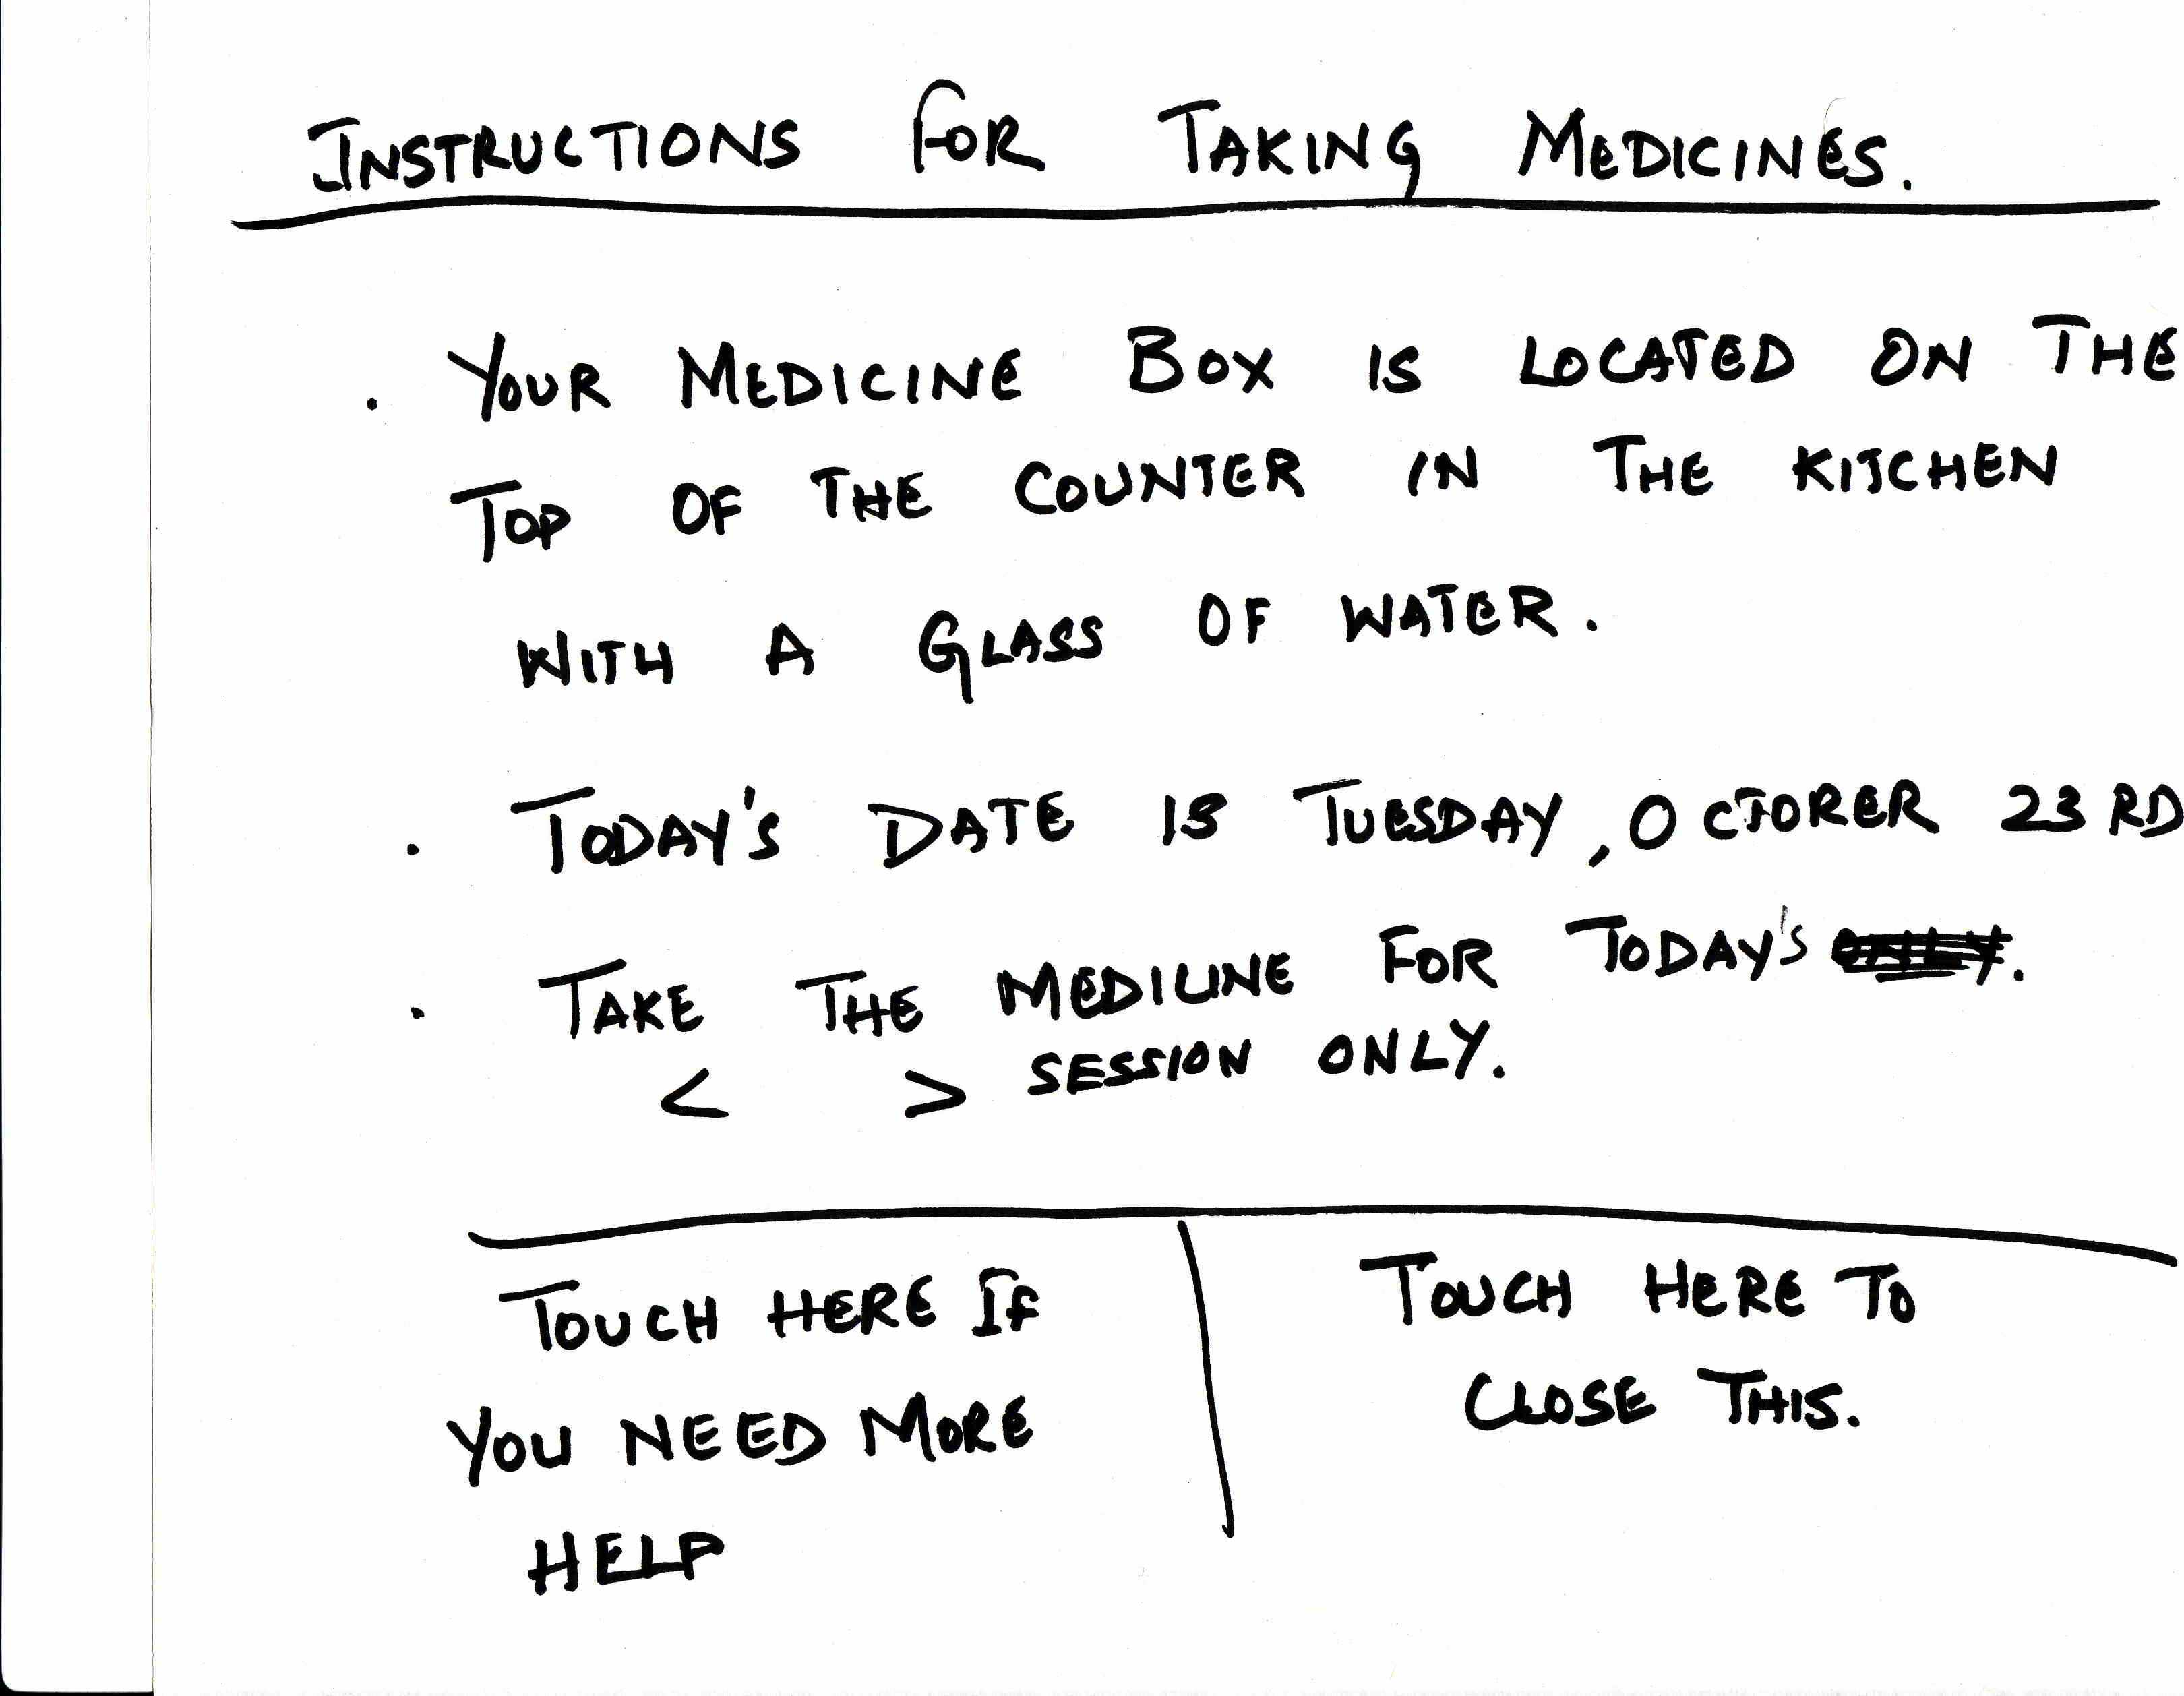 INSTRUCTIONS FOR TAKING MEDICINES.
. YOUR MEDICINE BOX IS LOCATED ON THE
TOP OF THE COUNTER IN THE KITCHEN
WITH A GLASS OF WATER.
. TODAY'S DATE IS TUESDAY, OCTORER 23 RD
. TAKE THE MEDICINE FOR TODAY'S
< > SESSION ONLY.
TOUCH HERE IF
YOU NEED MORE
HELP
TOUCH HERE TO
CLOSE THIS.